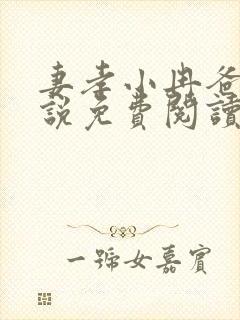 妻孝小冉爸
說免費閱讀
一號女嘉賓